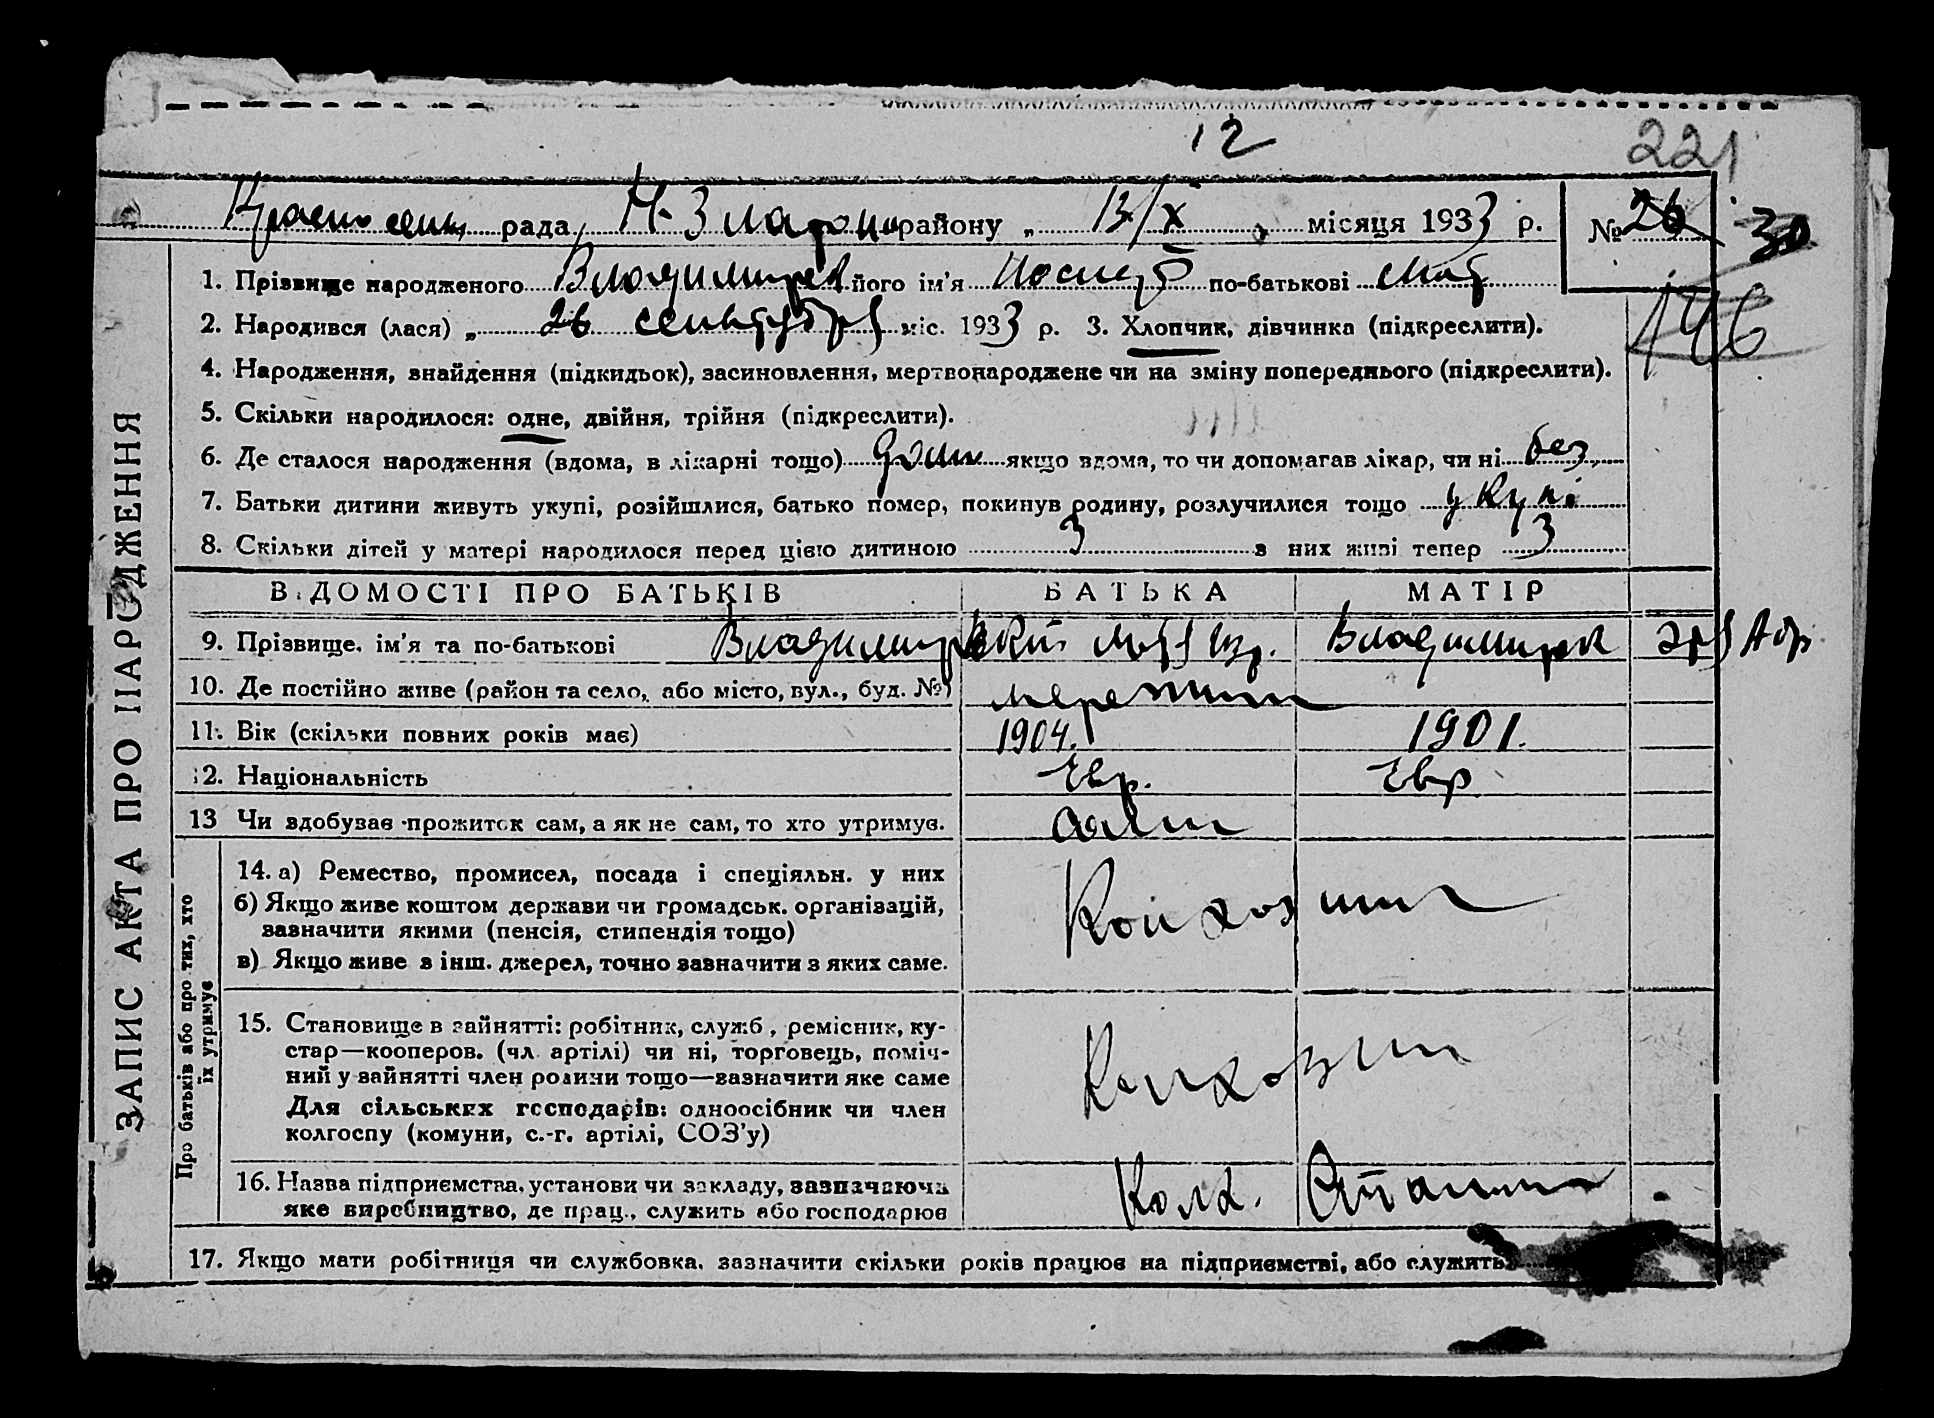 12
221
рада, Н-Златопіл району „ 13/X місяця 1933 р. № 26 30
1. Прізвище народженого Владимирск його ім'я Иосиф по-батькові
146
2. Народився (лася) „ 26 сентября міс. 1933 р. 3. Хлопчик, дівчинка (підкреслити).
4. Народження, знайдення (підкидьок), засиновлення, мертвонароджене чи на зміну попереднього (підкреслити).
5. Скільки народилося: одне, двійня, трійня (підкреслити).
6. Де сталося народження (вдома, в лікарні тощо) дома якщо вдома, то чи допомагав лікар, чи ні без
7. Батьки дитини живуть укупі, розійшлися, батько помер, покинув родину, розлучилися тощо укупі
8. Скільки дітей у матері народилося перед цією дитиною 3 з них живі тепер 3
ЗАПИС АКТА ПРО НАРОДЖЕННЯ
ВІДОМОСТІ ПРО БАТЬКІВ БАТЬКА МАТІР
9. Прізвище, ім'я та по-батькові Владимирский Владимирск
10. Де постійно живе (район та село, або місто, вул., буд. №)
11. Вік (скільки повних років має) 1904. 1901.
12. Національність Евр. Евр
13 Чи здобував прожиток сам, а як не сам, то хто утримує. сам
Про батьків або про тих, хто їх утримує
14. а) Ремество, промисел, посада і спеціяльн. у них
б) Якщо живе коштом держави чи громадськ. організацій,
зазначити якими (пенсія, стипендія тощо)
в) Якщо живе з інш. джерел, точно зазначити з яких саме.
Колхозник
15. Становище в зайнятті: робітник, служб., ремісник, ку-
стар—кооперов. (чл. артілі) чи ні, торговець, поміч-
ний у зайнятті член родини тощо—зазначити яке саме
Для сільських господарів: одноосібник чи член
колгоспу (комуни, с.-г. артілі, СОЗ'у)
Колхозник
16. Назва підприємства, установи чи закладу, зазначаючи
яке виробництво, де прац., служить або господарює
Колх. Сталина
17. Якщо мати робітниця чи службовка, зазначити скільки років працює на підприємстві, або служить